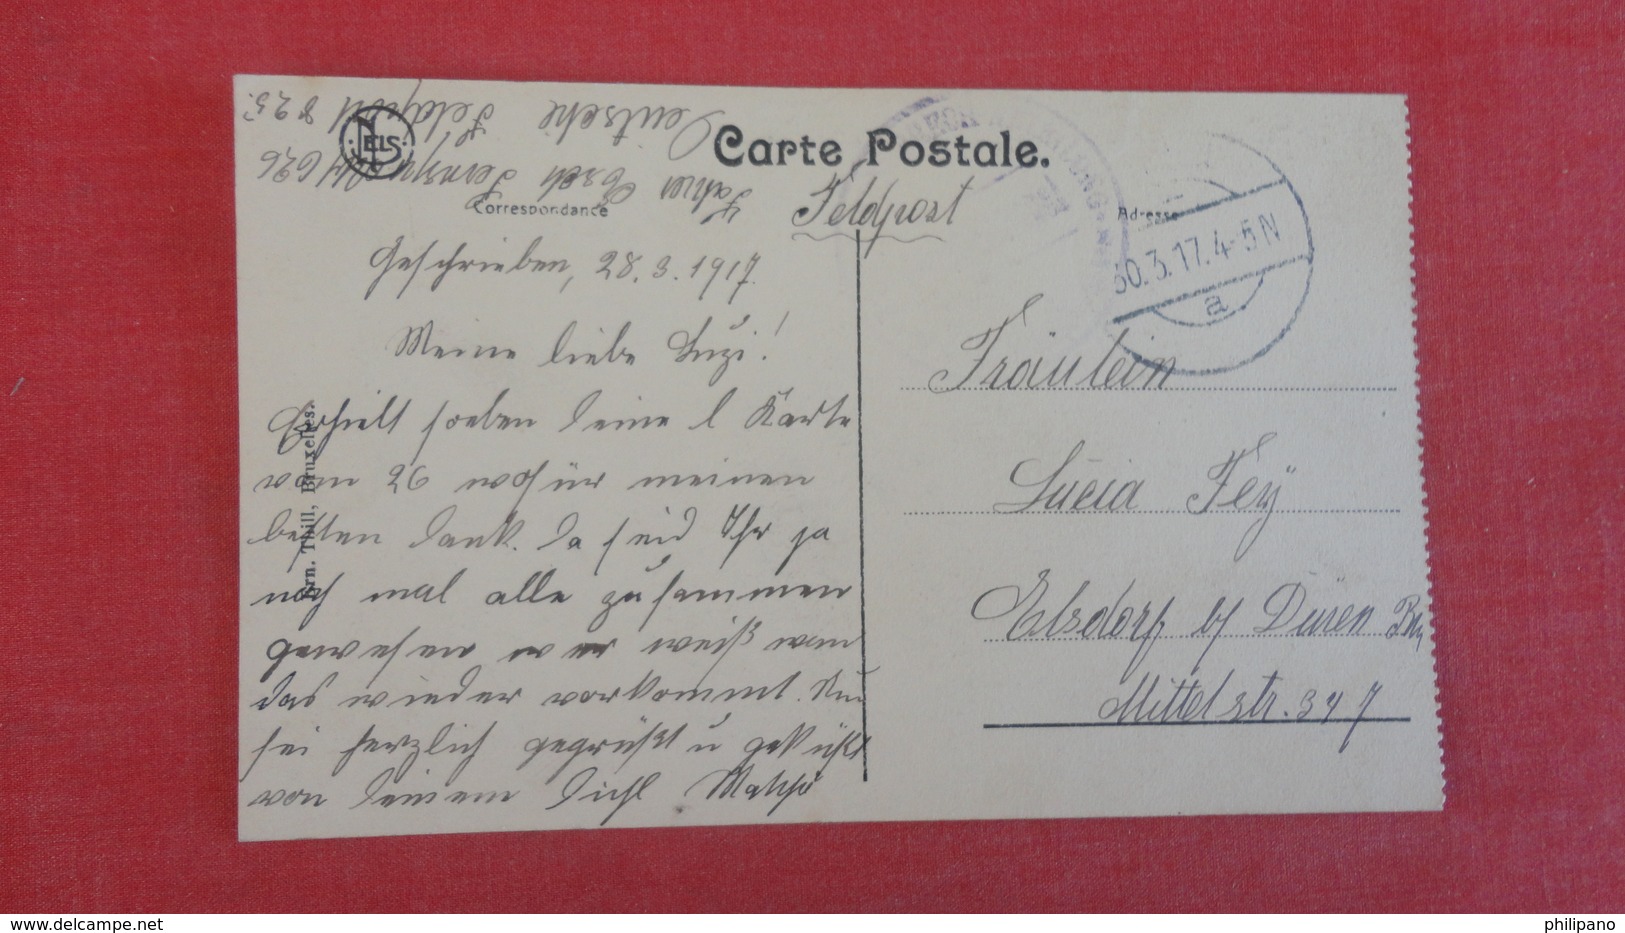 Deutsche Feldpost 825.
Fahrer Esch Fernspr. 626
ELS
Carte Postale.
Correspondance
Adresse
Feldpost
30.3.17.4-5N
a
Geschrieben, 28.3.1917.
Meine liebe Luzi!
Erhielt soeben deine l Karte
vom 26 wofür meinen
besten Dank. Da seid Ihr ja
noch mal alle zusammen
gewesen wer weiß wann
das wieder vorkommt. Nun
sei herzlich gegrüßt u geküßt
von deinem dich
Ern. Thill, Bruxelles.
Fräulein
Lucia Fey
Elsdorf b/ Düren
Mittelstr. 347
philipano